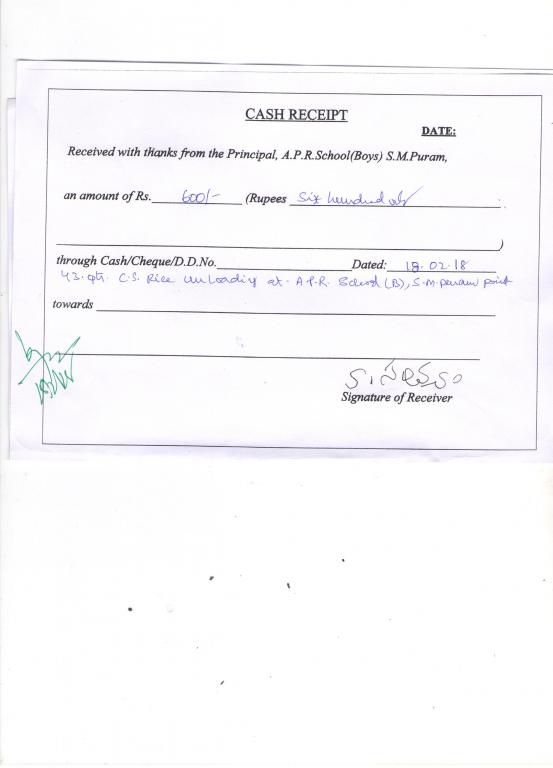 CASH RECEIPT
DATE:
Received with thanks from the Principal, A.P.R.School(Boys) S.M.Puram,
an amount of Rs. 600/- (Rupees Six hundred
)
through Cash/Cheque/D.D.No. Dated: 18.02.18
43. qtr. C.S. Rice unloading at. A.P.R. School (B), S.M.puram point
towards
Signature of Receiver